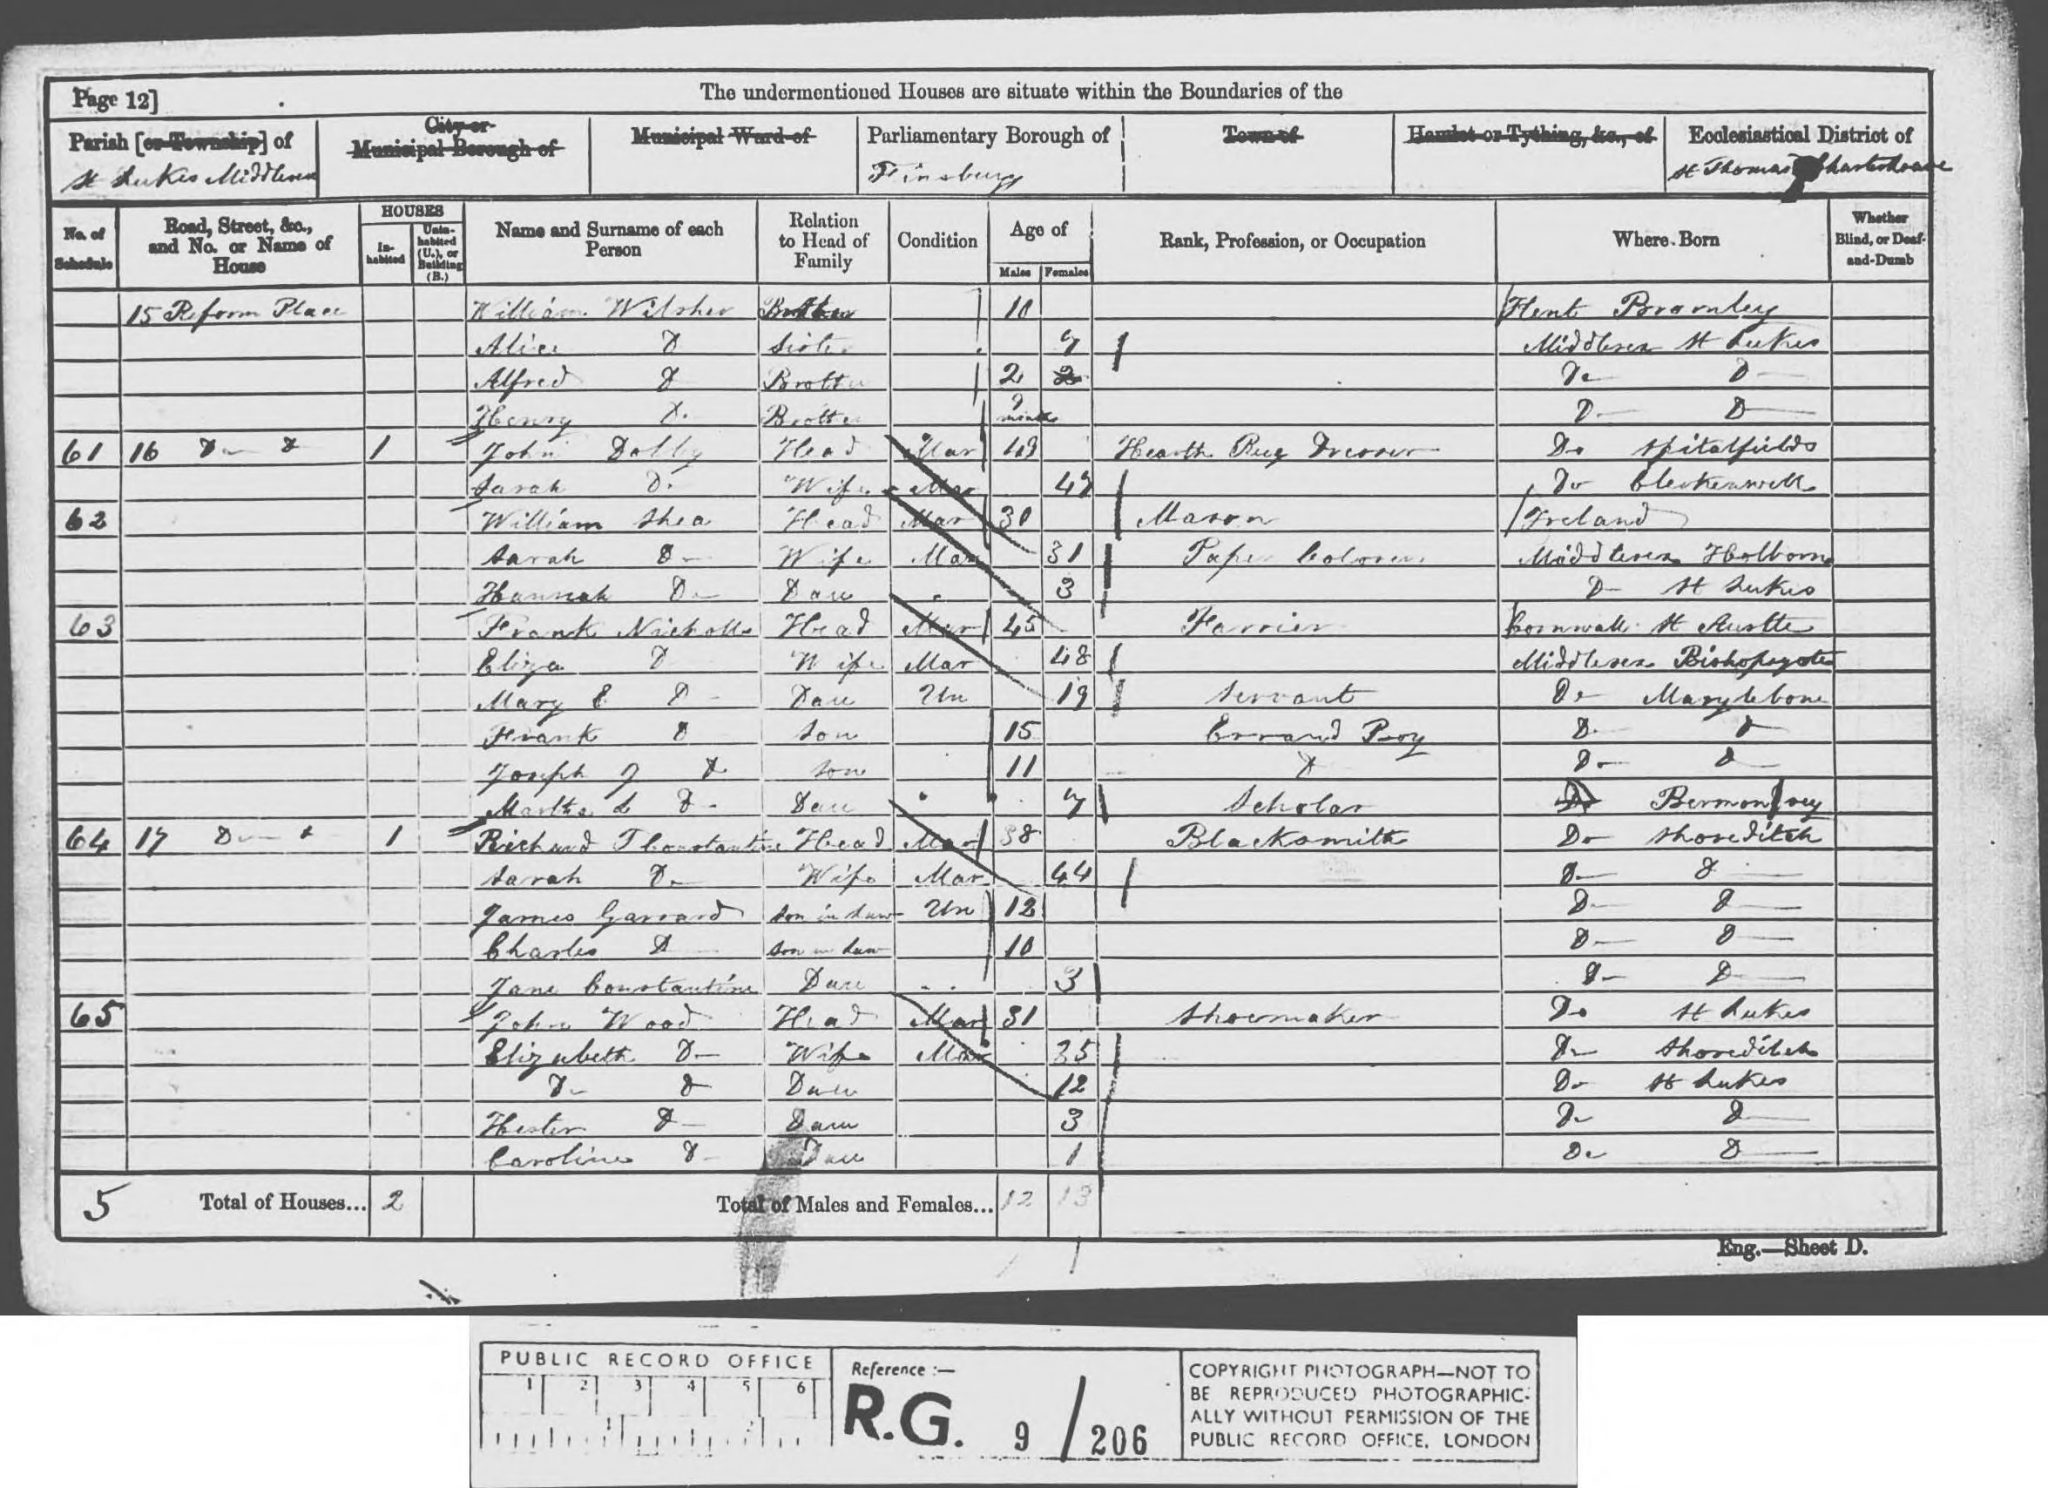 Page 12]
The undermentioned Houses are situate within the Boundaries of the
Parish [or Township] of
St Lukes Middlesex
City or
Municipal Borough of
Municipal Ward of
Parliamentary Borough of
Finsbury
Town of
Hamlet or Tything, &c., of
Ecclesiastical District of
St Thomas Charterhouse
No. of Schedule
Road, Street, &c., and No. or Name of House
HOUSES
Inhabited
Uninhabited (U.), or Building (B.)
Name and Surname of each Person
Relation to Head of Family
Condition
Age of
Males
Females
Rank, Profession, or Occupation
Where Born
Whether Blind, or Deaf-and-Dumb
15 Reform Place William Wilsher Brother 10 Kent Bromley
Alice D Sister 7 Middlesex St Lukes
Alfred D Brother 2 2 Do D
Henry D. Brother 9 months D D
61 16 Do D 1 John Dolby Head Mar 49 Hearth Rug Dresser Do Spitalfields
Sarah D. Wife Mar 47 Do Clerkenwell
62 William Shea Head Mar 30 Mason Ireland
Sarah D Wife Mar 31 Paper Colorer Middlesex Holborn
Hannah D Dau 3 D St Lukes
63 Frank Nicholls Head Mar 45 Farrier Cornwall St Austle
Eliza D Wife Mar 48 Middlesex Bishopsgate
Mary E D Dau Un 19 Servant Do Marylebone
Frank D Son 15 Errand Boy D D
Joseph J D Son 11 D Do D
Martha L D Dau 7 Scholar Do Bermondsey
64 17 Do D 1 Richard T Constantine Head Mar 38 Blacksmith Do Shoreditch
Sarah D. Wife Mar 44 D D
James Garrard Son in Law Un 12 D D
Charles D Son in Law 10 D D
Jane Constantine Dau 3 D D
65 John Wood Head Mar 31 Shoemaker Do St Lukes
Elizabeth D Wife Mar 35 Do Shoreditch
D D Dau 12 Do St Lukes
Hester D Dau 3 Do D
Caroline D Dau 1 Do D
5 Total of Houses... 2 Total of Males and Females... 12 13
Eng.—Sheet D.
PUBLIC RECORD OFFICE
1 2 3 4 5 6
Reference :—
R.G. 9 / 206
COPYRIGHT PHOTOGRAPH—NOT TO
BE REPRODUCED PHOTOGRAPHIC-
ALLY WITHOUT PERMISSION OF THE
PUBLIC RECORD OFFICE, LONDON